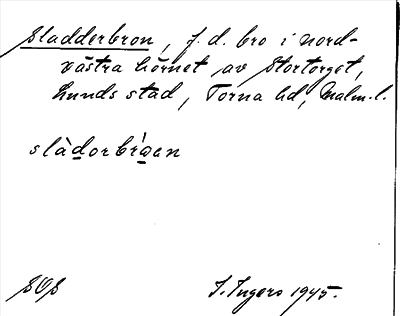 Sladderbron, f.d. bro i nord-
västra hörnet av Stortorget,
Lunds stad, Torna hd, Malm.l.
slàdorbrɷ́en
SOS
I. Ingers 1945.